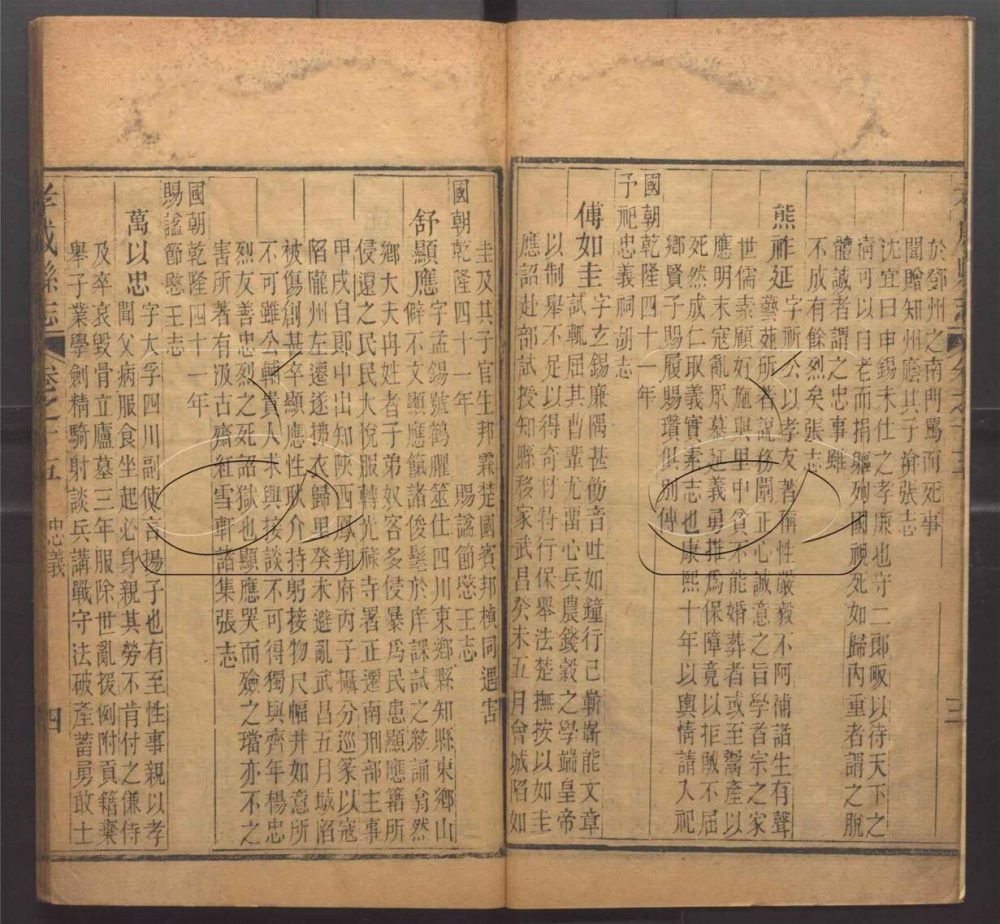 於鄧州之南門罵而死事
聞贈知州廕其子 張志
沈宜曰申錫未仕之孝廉也守二郎畞以待天下之
淸可以目目老而捐軀殉國視死如歸內重者謂之脫
體誠者謂之忠事雖
不成有餘烈矣張志
熊祚延 字 公以孝友著稱性嚴毅不阿浦諸生有聲
藝苑所著說務闡正心誠意之旨學者宗之家
世儒素顧好施與里中貧不能婚葬者或至鬻產以
應明末寇亂 慕延義勇推爲保障竟以拒賊不屈
死然成仁取義實素志也康熙十年以輿情請入祀
鄉賢子賜履賜瓚俱別傳
國朝乾隆四十一年
予祀忠義祠胡志
傅如圭 字玄錫廉隅甚飭音吐如鐘行己嶄嶄能文章
試輒屈其曹輩尤 心兵農錢穀之學端皇帝
以制舉不足以得奇材特行保舉法楚撫按以如圭
應詔赴部試授知縣移家武昌癸未五月會城陷如
圭及其子官生邦霖楚國賓邦楨同遇害
國朝乾隆四十一年 賜諡節愍王志
舒顯應 字孟錫號鶴 筮仕四川東鄉縣知縣東鄉山
僻不文顯應簡諸俊髦於庠課試之絃誦翕然
鄉大夫冉姓者子弟奴客多侵暴爲民患顯應籍所
侵還之民民大悅服轉光祿寺署正遷南刑部主事
甲戌自郎中出知陝西鳳翔府丙子攝分巡篆以寇
陷隴州左遷遂拂衣歸里癸未避亂武昌五月城陷
被傷創甚卒顯應性耿介持躬接物尺幅井如意所
不可雖公輔貴人求與接談不可得獨與齊年楊忠
烈友善忠烈之死詔獄也顯應哭而殮之璫亦不之
害所著有汲古齋紅雪軒諸集張志
國朝乾隆四十一年
賜諡節愍王志
萬以忠 字大孚四川副使言揚子也有至性事親以孝
聞父病服食坐起必身親其勞不肯付之傔侍
及卒哀毀骨立廬墓三年服除世亂援例附貢籍棄
舉子業學劍精騎射談兵講戰守法破產蓄勇敢士
孝感縣志
卷之十五 忠義
四